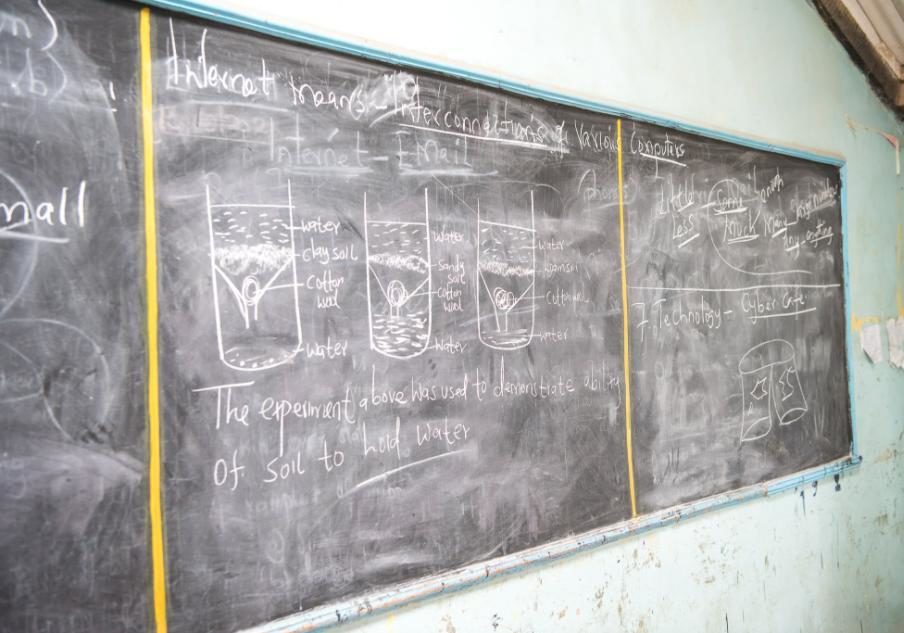 mall
Internet means - Interconnections of various Computers
Internet - Email
water
clay soil
Cotton wool
water
Water
Sandy soil
Cotton wool
Water
water
Cotton wool
water
The experiment above was used to demonstrate ability
Of soil to hold water
Little -
Less Much Many
any - anything
7. Technology - Cyber Cafe